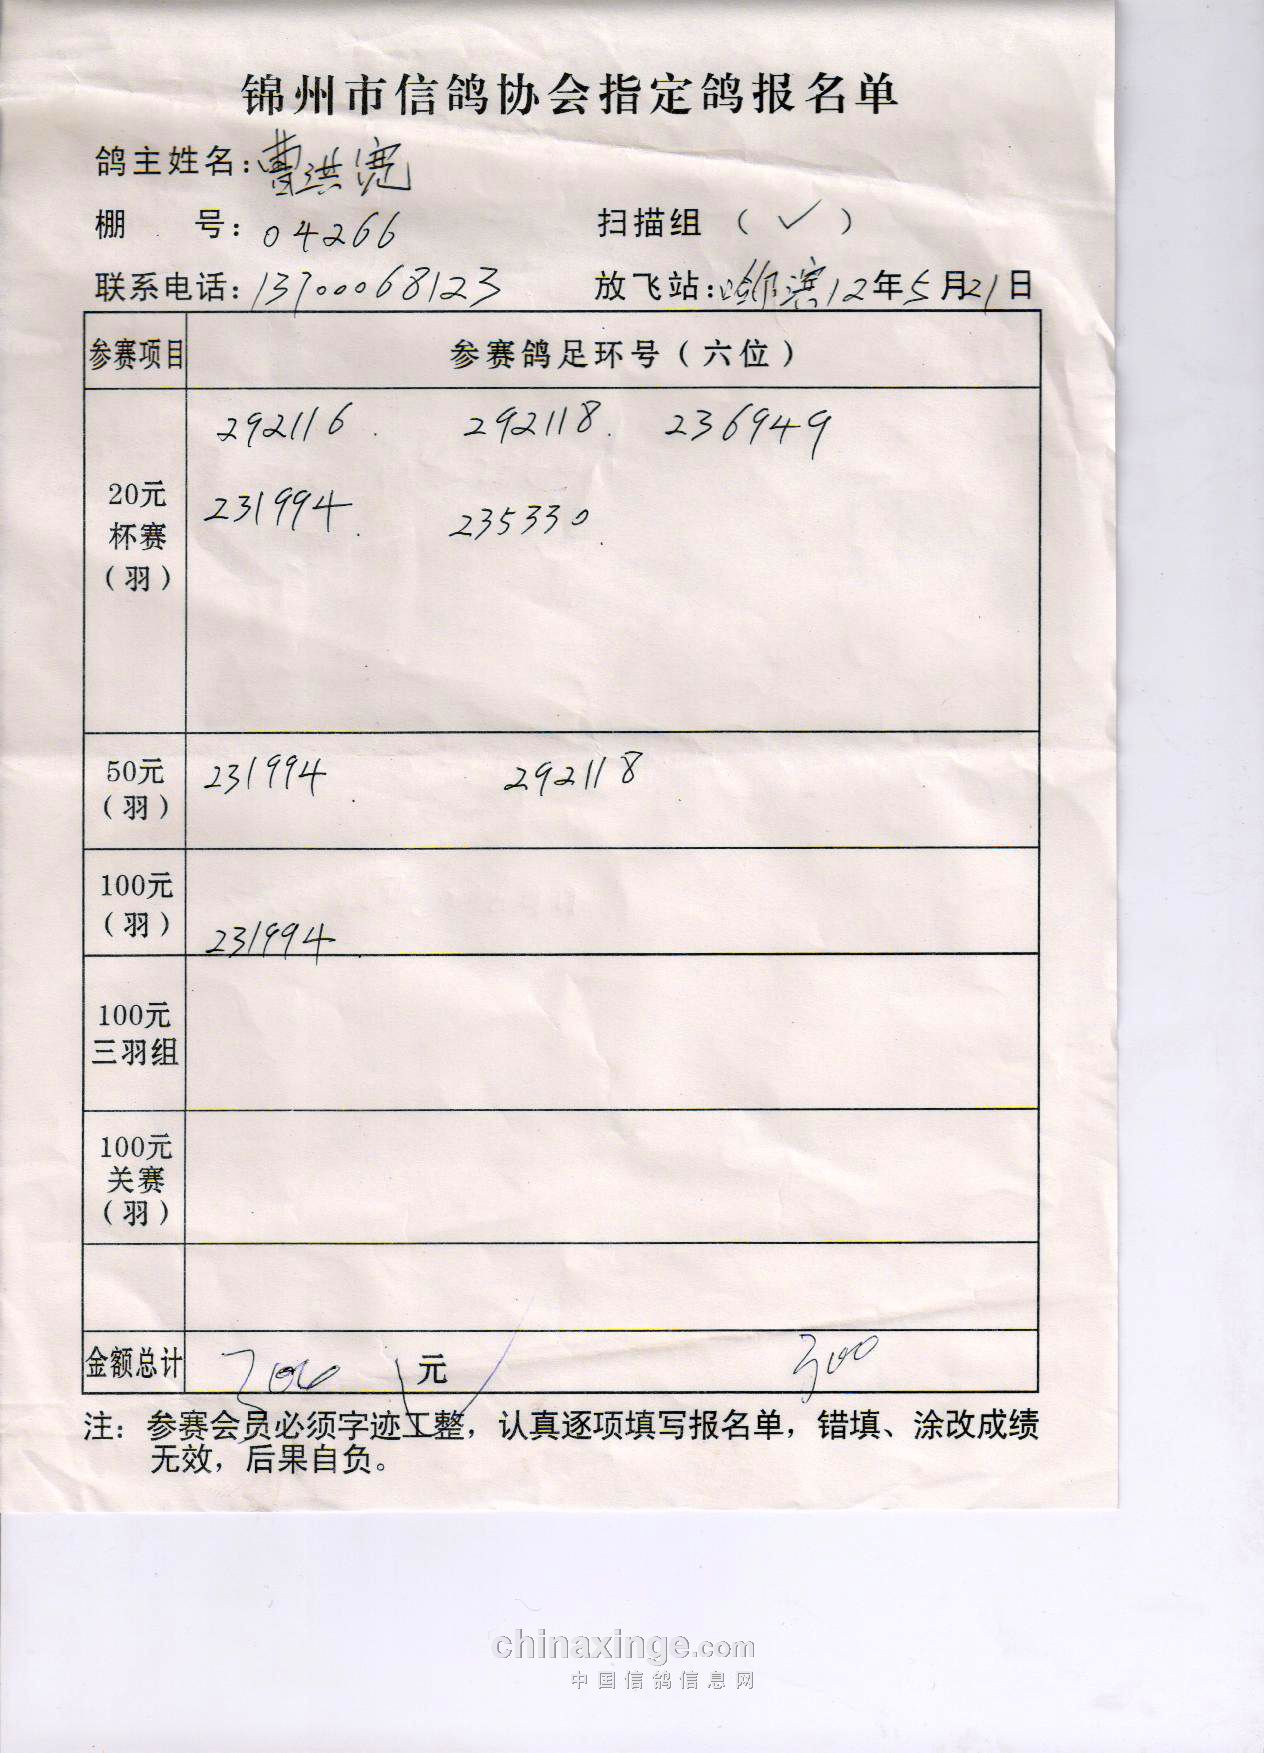 锦州市信鸽协会指定鸽报名单
鸽主姓名：曹洪宽
棚 号：04266 扫描组（✓）
联系电话：13700068123 放飞站：哈尔滨 12年5月21日
参赛项目 参赛鸽足环号（六位）
20元
杯赛
（羽）
292116. 292118. 236949
231994. 235330.
50元
（羽）
231994. 292118.
100元
（羽）
231994.
100元
三羽组
100元
关赛
（羽）
金额总计 300 元 300
注：参赛会员必须字迹工整，认真逐项填写报名单，错填、涂改成绩
无效，后果自负。
chinaxinge.com
中国信鸽信息网